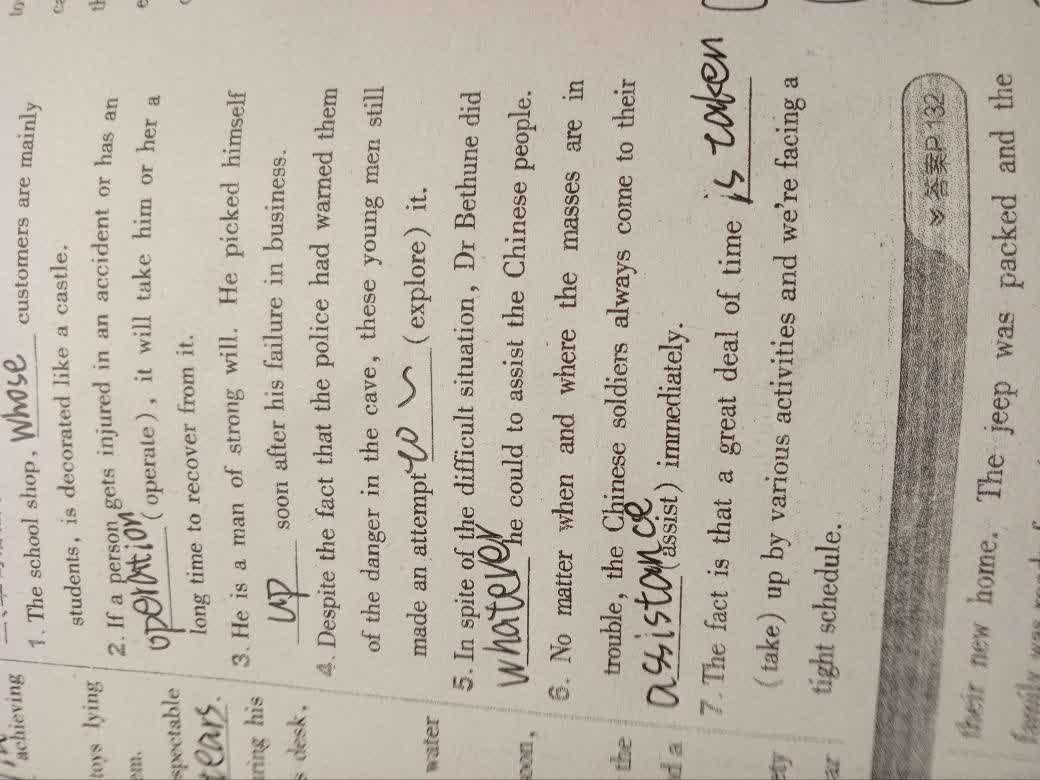 achieving
toys lying
em.
spectable
tears.
ring his
s desk,
water
oon,
the
d a
ety
ar
1. The school shop, whose customers are mainly
students, is decorated like a castle.
2. If a person gets injured in an accident or has an
operation (operate), it will take him or her a
long time to recover from it.
3. He is a man of strong will. He picked himself
up soon after his failure in business.
4. Despite the fact that the police had warned them
of the danger in the cave, these young men still
made an attempt to ~ (explore) it.
5. In spite of the difficult situation, Dr Bethune did
whatever he could to assist the Chinese people.
6. No matter when and where the masses are in
trouble, the Chinese soldiers always come to their
assistance (assist) immediately.
7. The fact is that a great deal of time is taken
(take) up by various activities and we're facing a
tight schedule.
答案P.132
their new home. The jeep was packed and the
family was